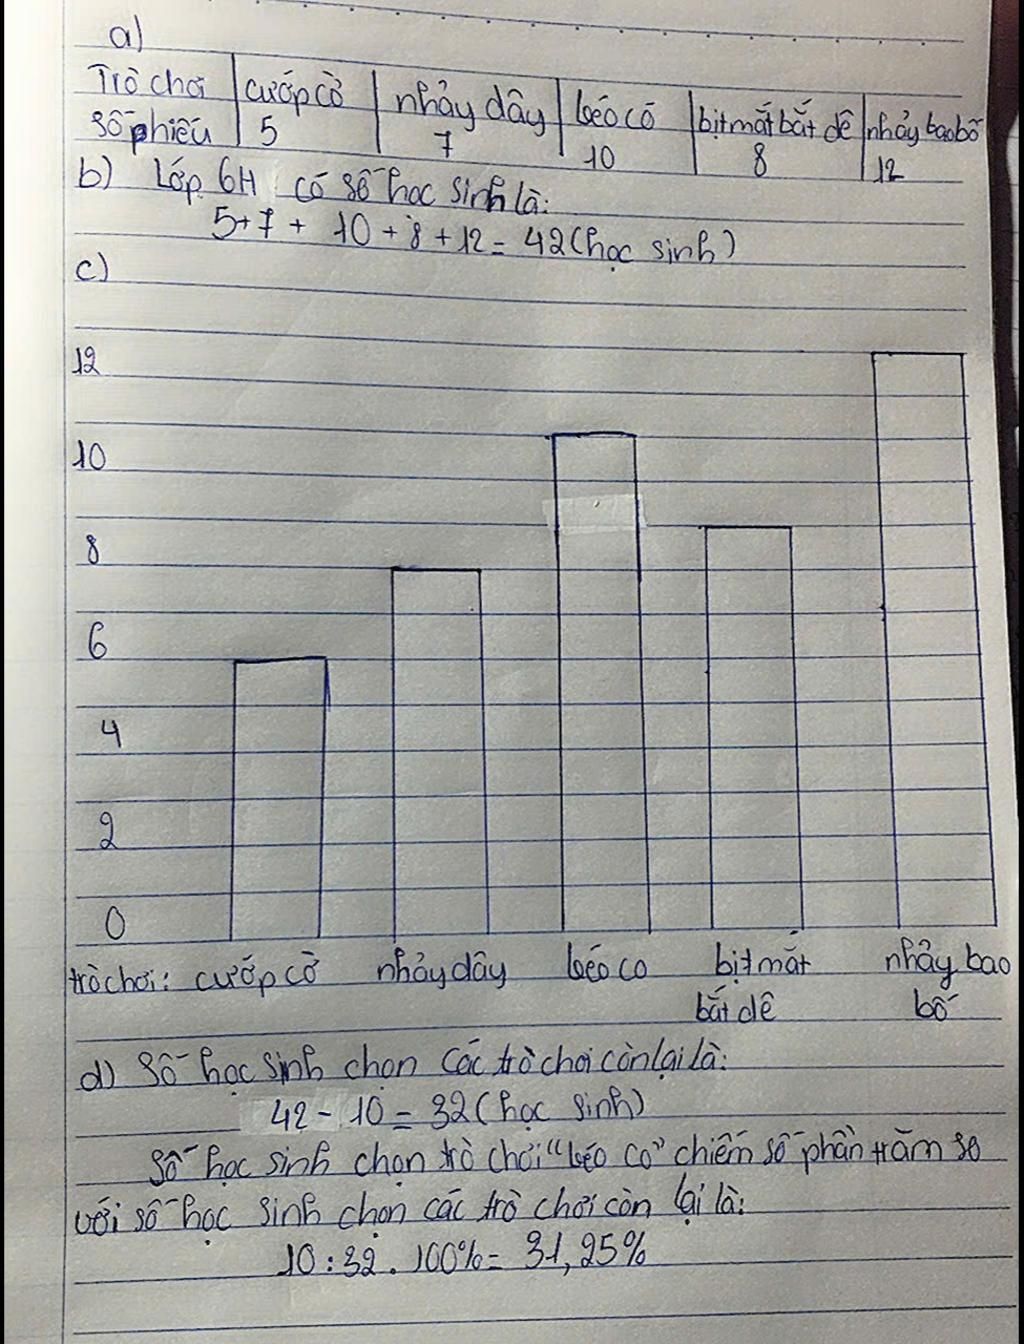 a)
Trò chơi cướp cờ nhảy dây kéo có bịt mắt bắt dê nhảy bao bố
Số phiếu 5 7 10 8 12
b) Lớp 6H có số học sinh là:
5+7+ 10+8+12= 42(học sinh)
c)
12
10
8
6
4
2
0
trò chơi: cướp cờ nhảy dây kéo co bịt mắt nhảy bao
bắt dê bố
d) Số học sinh chọn các trò chơi còn lại là:
42- 10=32(học sinh)
Số học sinh chọn trò chơi "kéo co" chiếm số phần trăm so
với số học sinh chọn các trò chơi còn lại là:
10:32.100%= 31,25%